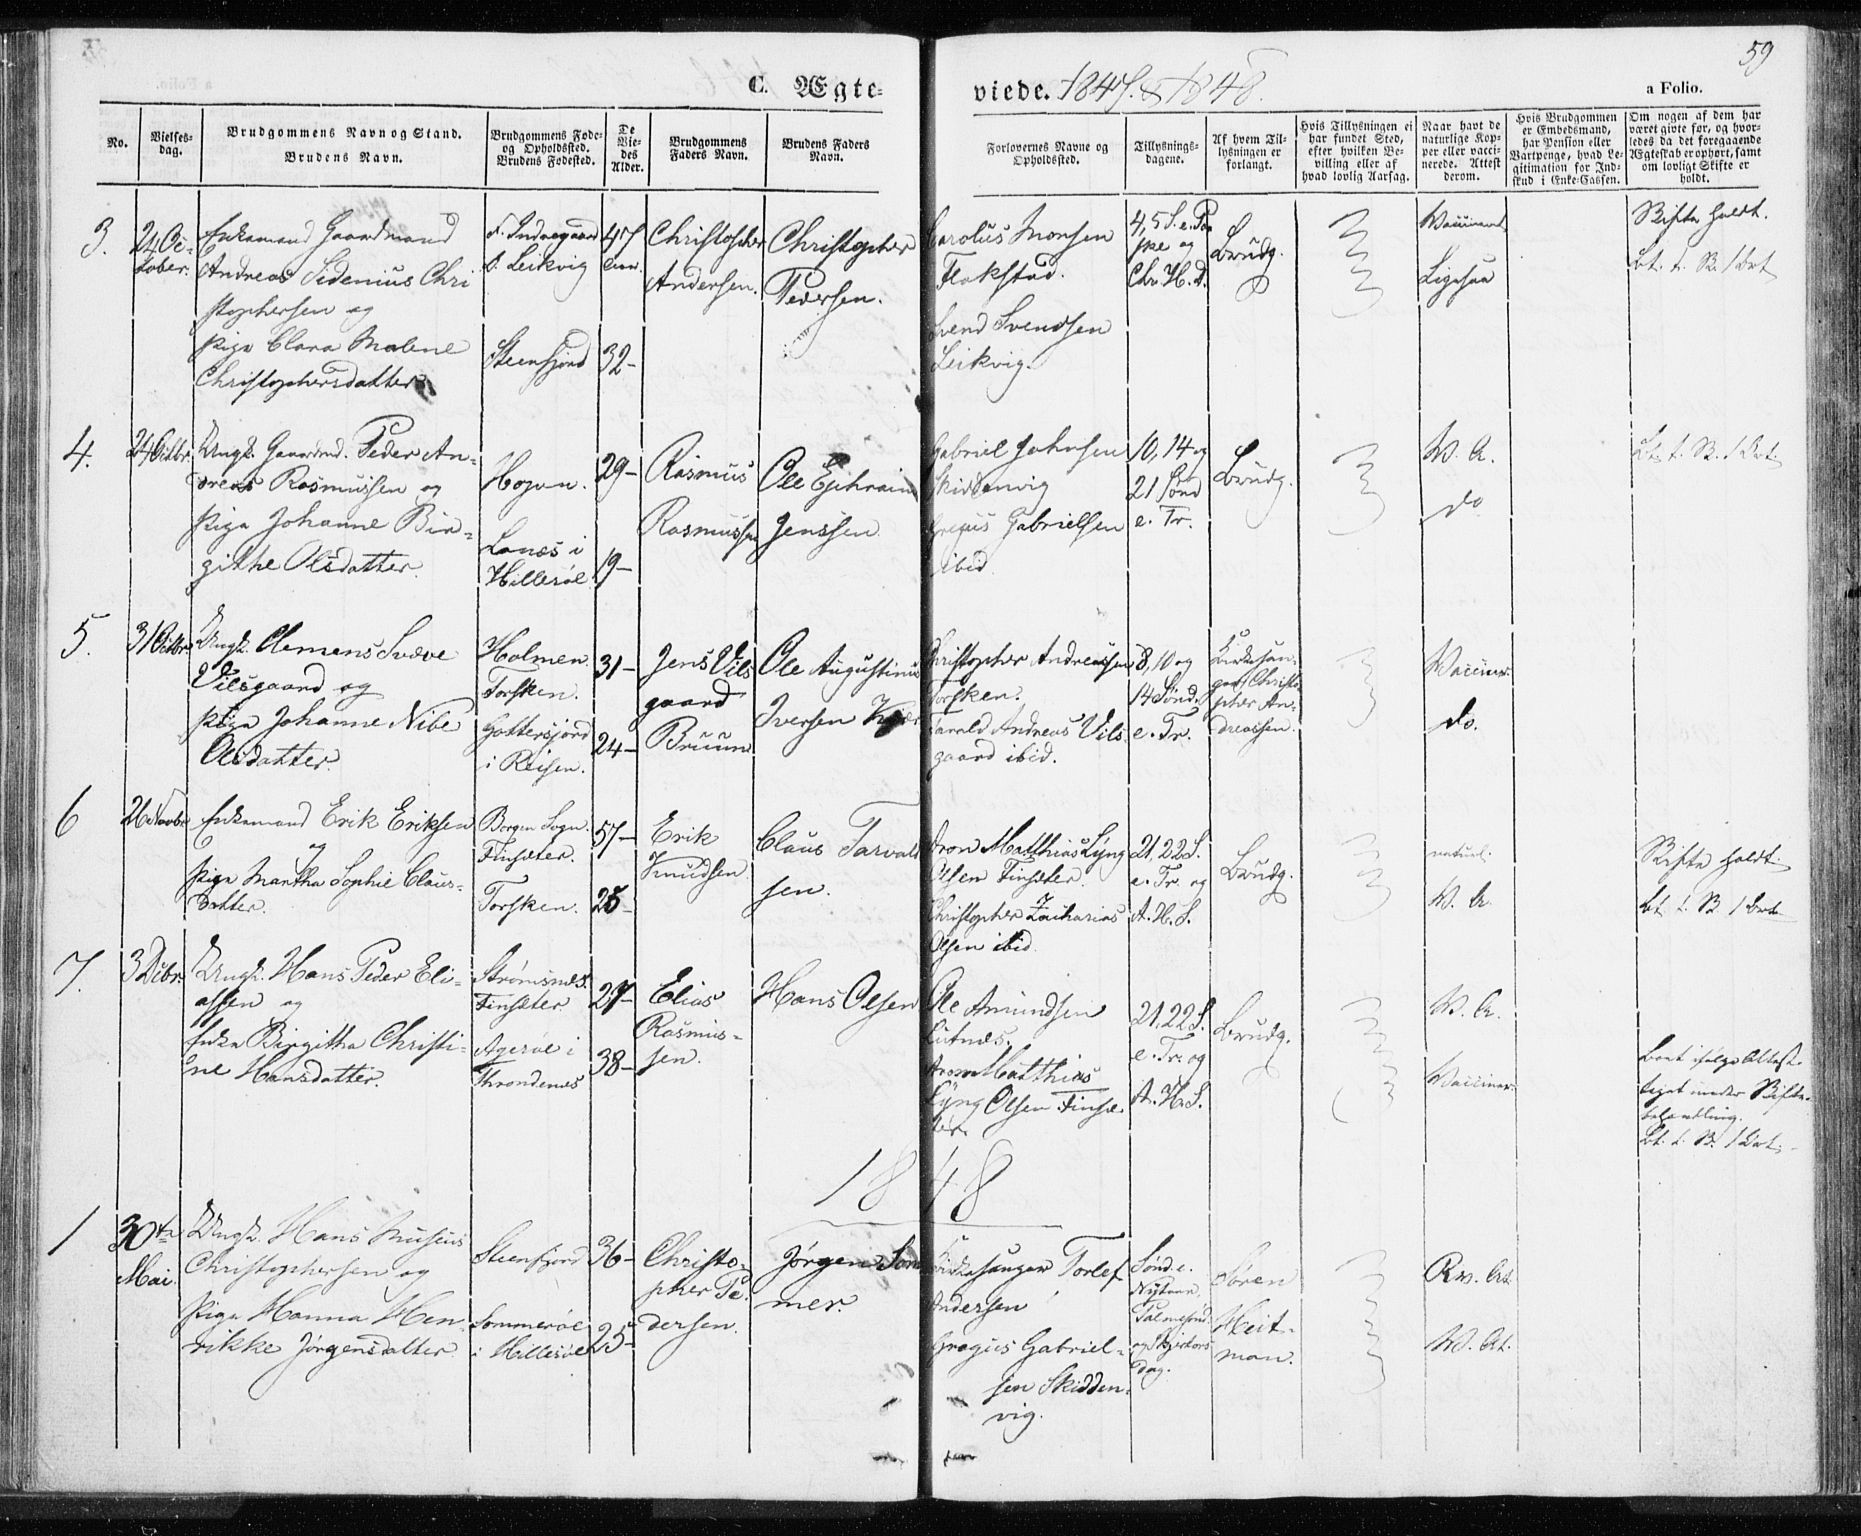 59
C. Ægte-
viede. 1847. & 1848.
a Folio.
No.
Vielses-
dag.
Brudgommens Navn og Stand.
Brudens Navn.
Brudgommens Føde-
og Opholdssted.
Brudens Fødested.
De
Vie-
des
Alder.
Brudgommens
Faders Navn.
Brudens Faders
Navn.
Forlovernes Navne og
Opholdssted.
Tillysnings-
dagene.
Af hvem Til-
lysningen er
forlangt.
Hvis Tillysningen ei
har fundet Sted,
efter hvilken Be-
villing eller af
hvad lovlig Aarsag.
Naar havt de
naturlige Kop-
per eller vacci-
nerede. Attest
derom.
Hvis Brudgommen
er Embedsmand,
har Pension eller
Vartpenge, hvad Le-
gitimation for Ind-
skud i Enke-Cassen.
Om nogen af dem har
været givte før, og hvor-
ledes da det foregaaende
Ægteskab er ophørt, samt
om lovligt Skifte er
holdt.
3.
24 Oc-
tober.
Enkemand Gaardmand
Andreas Sidenius Chri
stophersen og
Pige Clara Malene
Christophersdatter
f. Indregaard
b. Leikvig
Steenfjord
47
32-
Christopher
Andersen.
Christopher
Pedersen.
Carolus Monsen
Flakstad.
Svend Svendsen
Leikvig.
4, 5 S. e. Pa
ske og
Chr. H. D.
Brudg.
Ligesaa
Skifte holdt.
4.
24 Octbr.
Ungk. Gaardmd. Peder An-
dreas Rasmussen og
Pige Johanne Bir-
githe Olsdatter.
Hopen.
Lanes i
Hillesøe
29-
19-
Rasmus
Rasmussen
Ole Ephraim
Jenssen
Gabriel Johnsen
Skiddenvig
Gregus Gabrielsen
ibid
10, 14 og
21 Sønd
e. Tr.
Brudg.
V. A.
do
5.
31 Octbr.
Ungk. Clemens Svæve
Vilsgaard og
Pige Johanne Nibe
Olsdatter.
Holmen
Torsken.
Gottersjord
i Reisen.
31-
24-
Jens Vils
gaard
Bruun
Ole Augustinus
Iversen Kjær
Christopher Andreassen
Torsken.
Tarald Andreas Vils-
gaard ibid.
8, 10 og
14 Sønd.
e. Tr.
Kirkesan-
ger Christo
pher An-
dreassen.
Vacciner.
do.
6
26 Novbr
Enkemand Erik Eriksen
og
Pige Martha Sophie Claus-
datter.
Borgen Sogn.
Finsæter.
Torsken.
57-
25-
Erik
Knudsen
Claus Tarvald
sen.
Aron Matthias Lyng
Olsen Finsæter.
Christopher Zacharias
Olsen ibid
21, 22 S.
e. Tr. og
A. H. S.
Brudg.
naturl.
V. A.
Skifte holdt.
7.
3 Dcbr.
Ungk. Hans Peder Eli-
assen og
Enke Birgitha Christi-
ne Hansdatter.
Strømsnæs.
Finsæter.
Agerøe i
Throndenes
27-
38-
Elias
Rasmus-
sen.
Hans Olsen
Ole Amundsen
Lutnæs.
Aron Matthias
Lyng Olsen Finsæ-
ter.
21, 22 S.
e. Tr. og
A. H. S.
Brudg.
V. A.
Vacciner.
Boet ifølge Attest
taget under Skifte-
behandling.
1848
1
30te
Mai.
Ungk. Hans Museus
Christophersen og
Pige Hanna Hen
rikke Jørgensdatter
Steenfjord
Sommerøe
i Hillesøe
36-
25-
Christo-
pher Pe-
dersen.
Jørgen Som
mer.
Kirkesanger Torlef
Andersen
Gregus Gabriel-
sen Skidden-
vig.
Sønd. e.
Nytaar.
Palmesønd.
og Skjertors
dag.
Søren
Heit-
man.
Rv. At.
V. At.